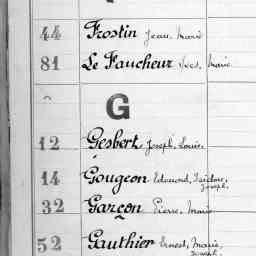 44 Frostin Jean, Marie
81 Le Faucheur Yves, Marie
G
12 Gesbert, Joseph, Louis.
14 Gougeon Edouard, Isidore, Joseph.
32 Garçon Pierre, Marie
52 Gauthier Ernest, Marie, Joseph.